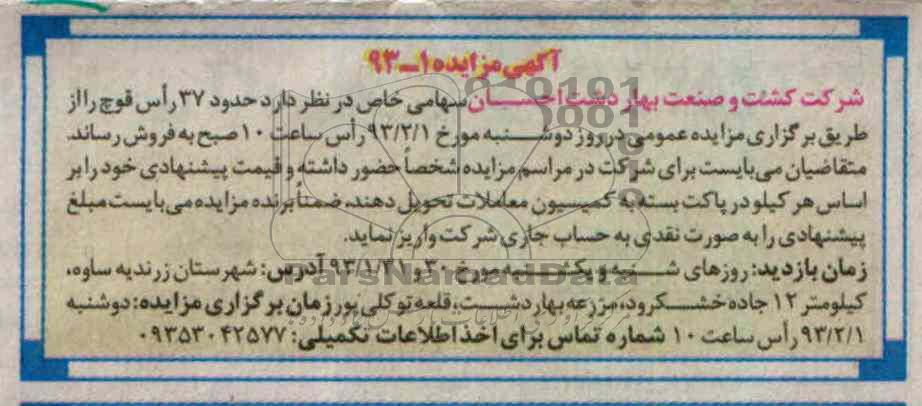 آگهی مزایده ۱-۹۳
شرکت کشت و صنعت بهار دشت احسان سهامی خاص در نظر دارد حدود ۳۷ رأس قوچ را از
طریق برگزاری مزایده عمومی در روز دوشنبه مورخ ۹۳/۲/۱ رأس ساعت ۱۰ صبح به فروش رساند.
متقاضیان می‌بایست برای شرکت در مراسم مزایده شخصاً حضور داشته و قیمت پیشنهادی خود را بر
اساس هر کیلو در پاکت بسته به کمیسیون معاملات تحویل دهند، ضمناً برنده مزایده می‌بایست مبلغ
پیشنهادی را به صورت نقدی به حساب جاری شرکت واریز نماید.
زمان بازدید: روزهای شنبه و یکشنبه مورخ ۳۰ و ۹۳/۱/۳۱ آدرس: شهرستان زرندیه ساوه،
کیلومتر ۱۲ جاده خشکرود، مزرعه بهار دشت، قلعه توکلی پور زمان برگزاری مزایده: دوشنبه
۹۳/۲/۱ رأس ساعت ۱۰ شماره تماس برای اخذ اطلاعات تکمیلی: ۰۹۳۵۳۰۴۲۵۷۷
ParsNamadData